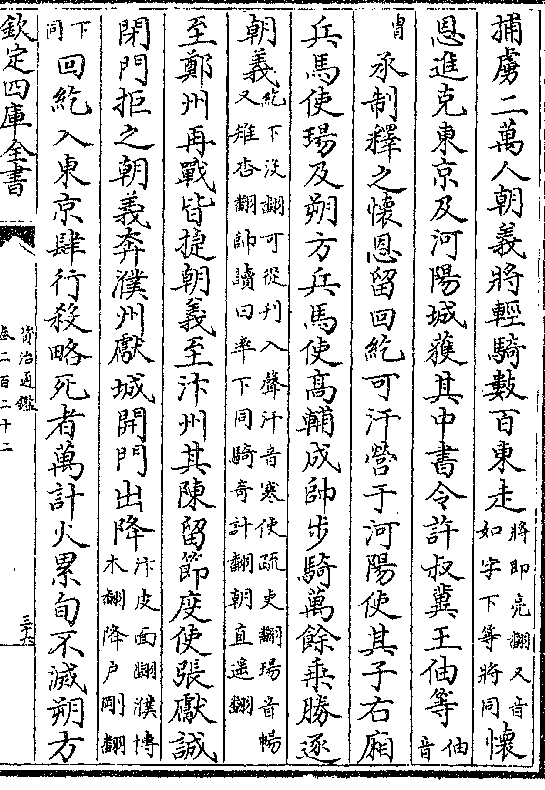 捕虜二萬人朝義將輕騎數百東走將即亮翻又音如字下等將同懷
恩進克東京及河陽城獲其中書令許叔冀王伷等伷音
胄承制釋之懷恩留回紇可汗營于河陽使其子右廂
兵馬使瑒及朔方兵馬使髙輔成帥步騎萬餘乘勝逐
朝義紇下沒翻可從刋入聲汗音寒使疏吏翻瑒音暢又雉杏翻帥讀曰率下同騎奇計翻朝直遥翻
至鄭州再戰皆捷朝義至汴州其陳留節度使張獻誠
閉門拒之朝義奔濮州獻城開門出降汴皮面翻濮博木翻降户剛翻
下同回紇入東京肆行殺略死者萬計火累旬不滅朔方
欽定四庫全書
資治通鑑
卷二百二十二
三十六